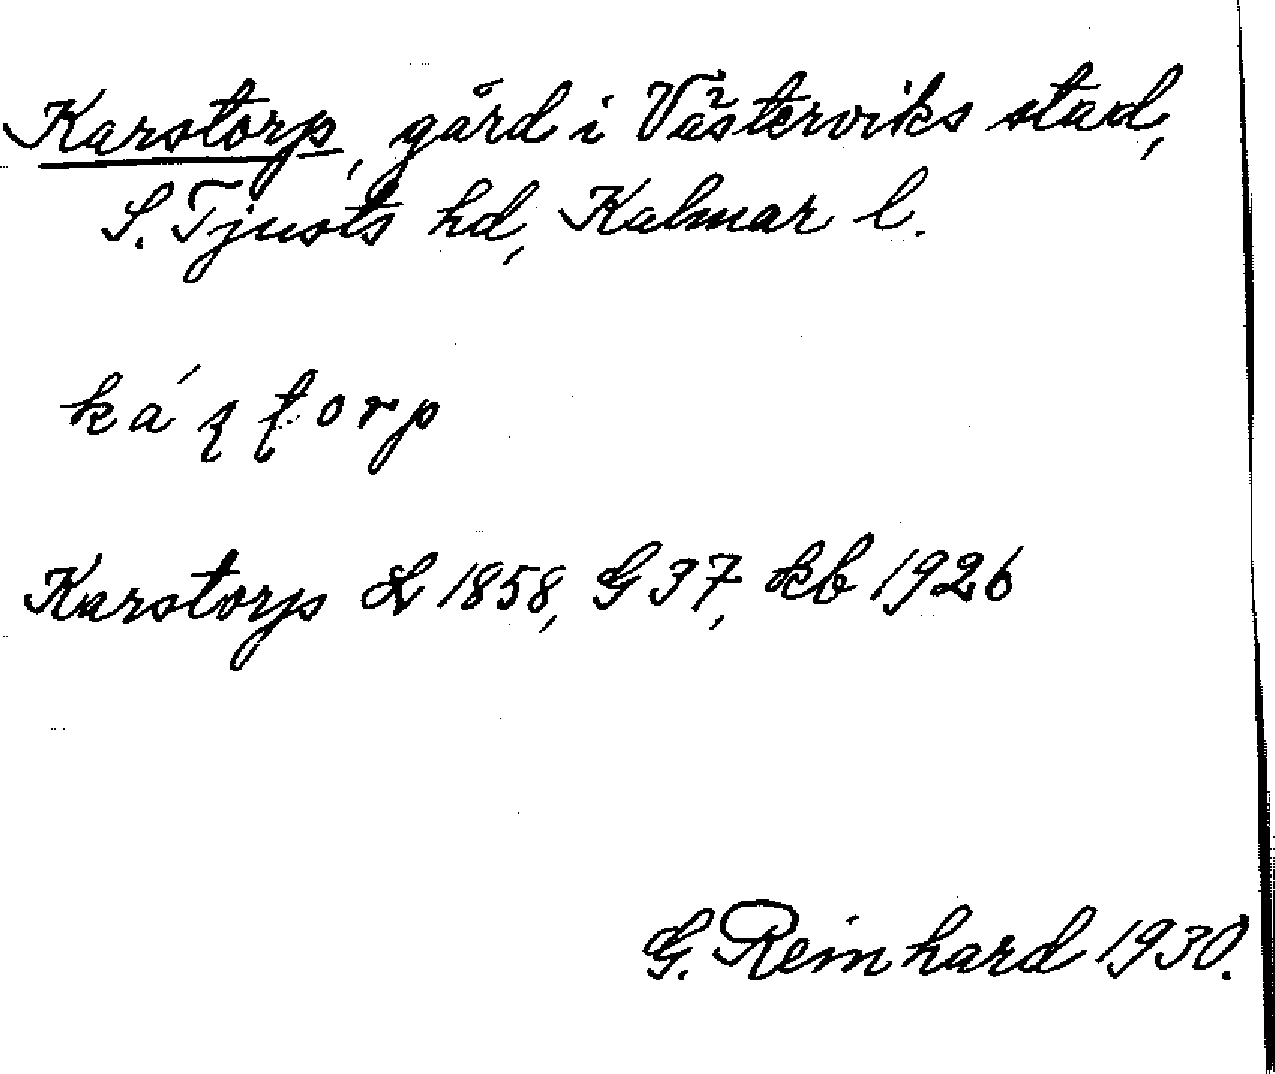 Karstorp, gård i Västerviks stad,
S. Tjusts hd, Kalmar l.
ká ʂ ʈ o r p
Karstorp L 1858, G 37, kb 1926
G. Reinhard 1930.